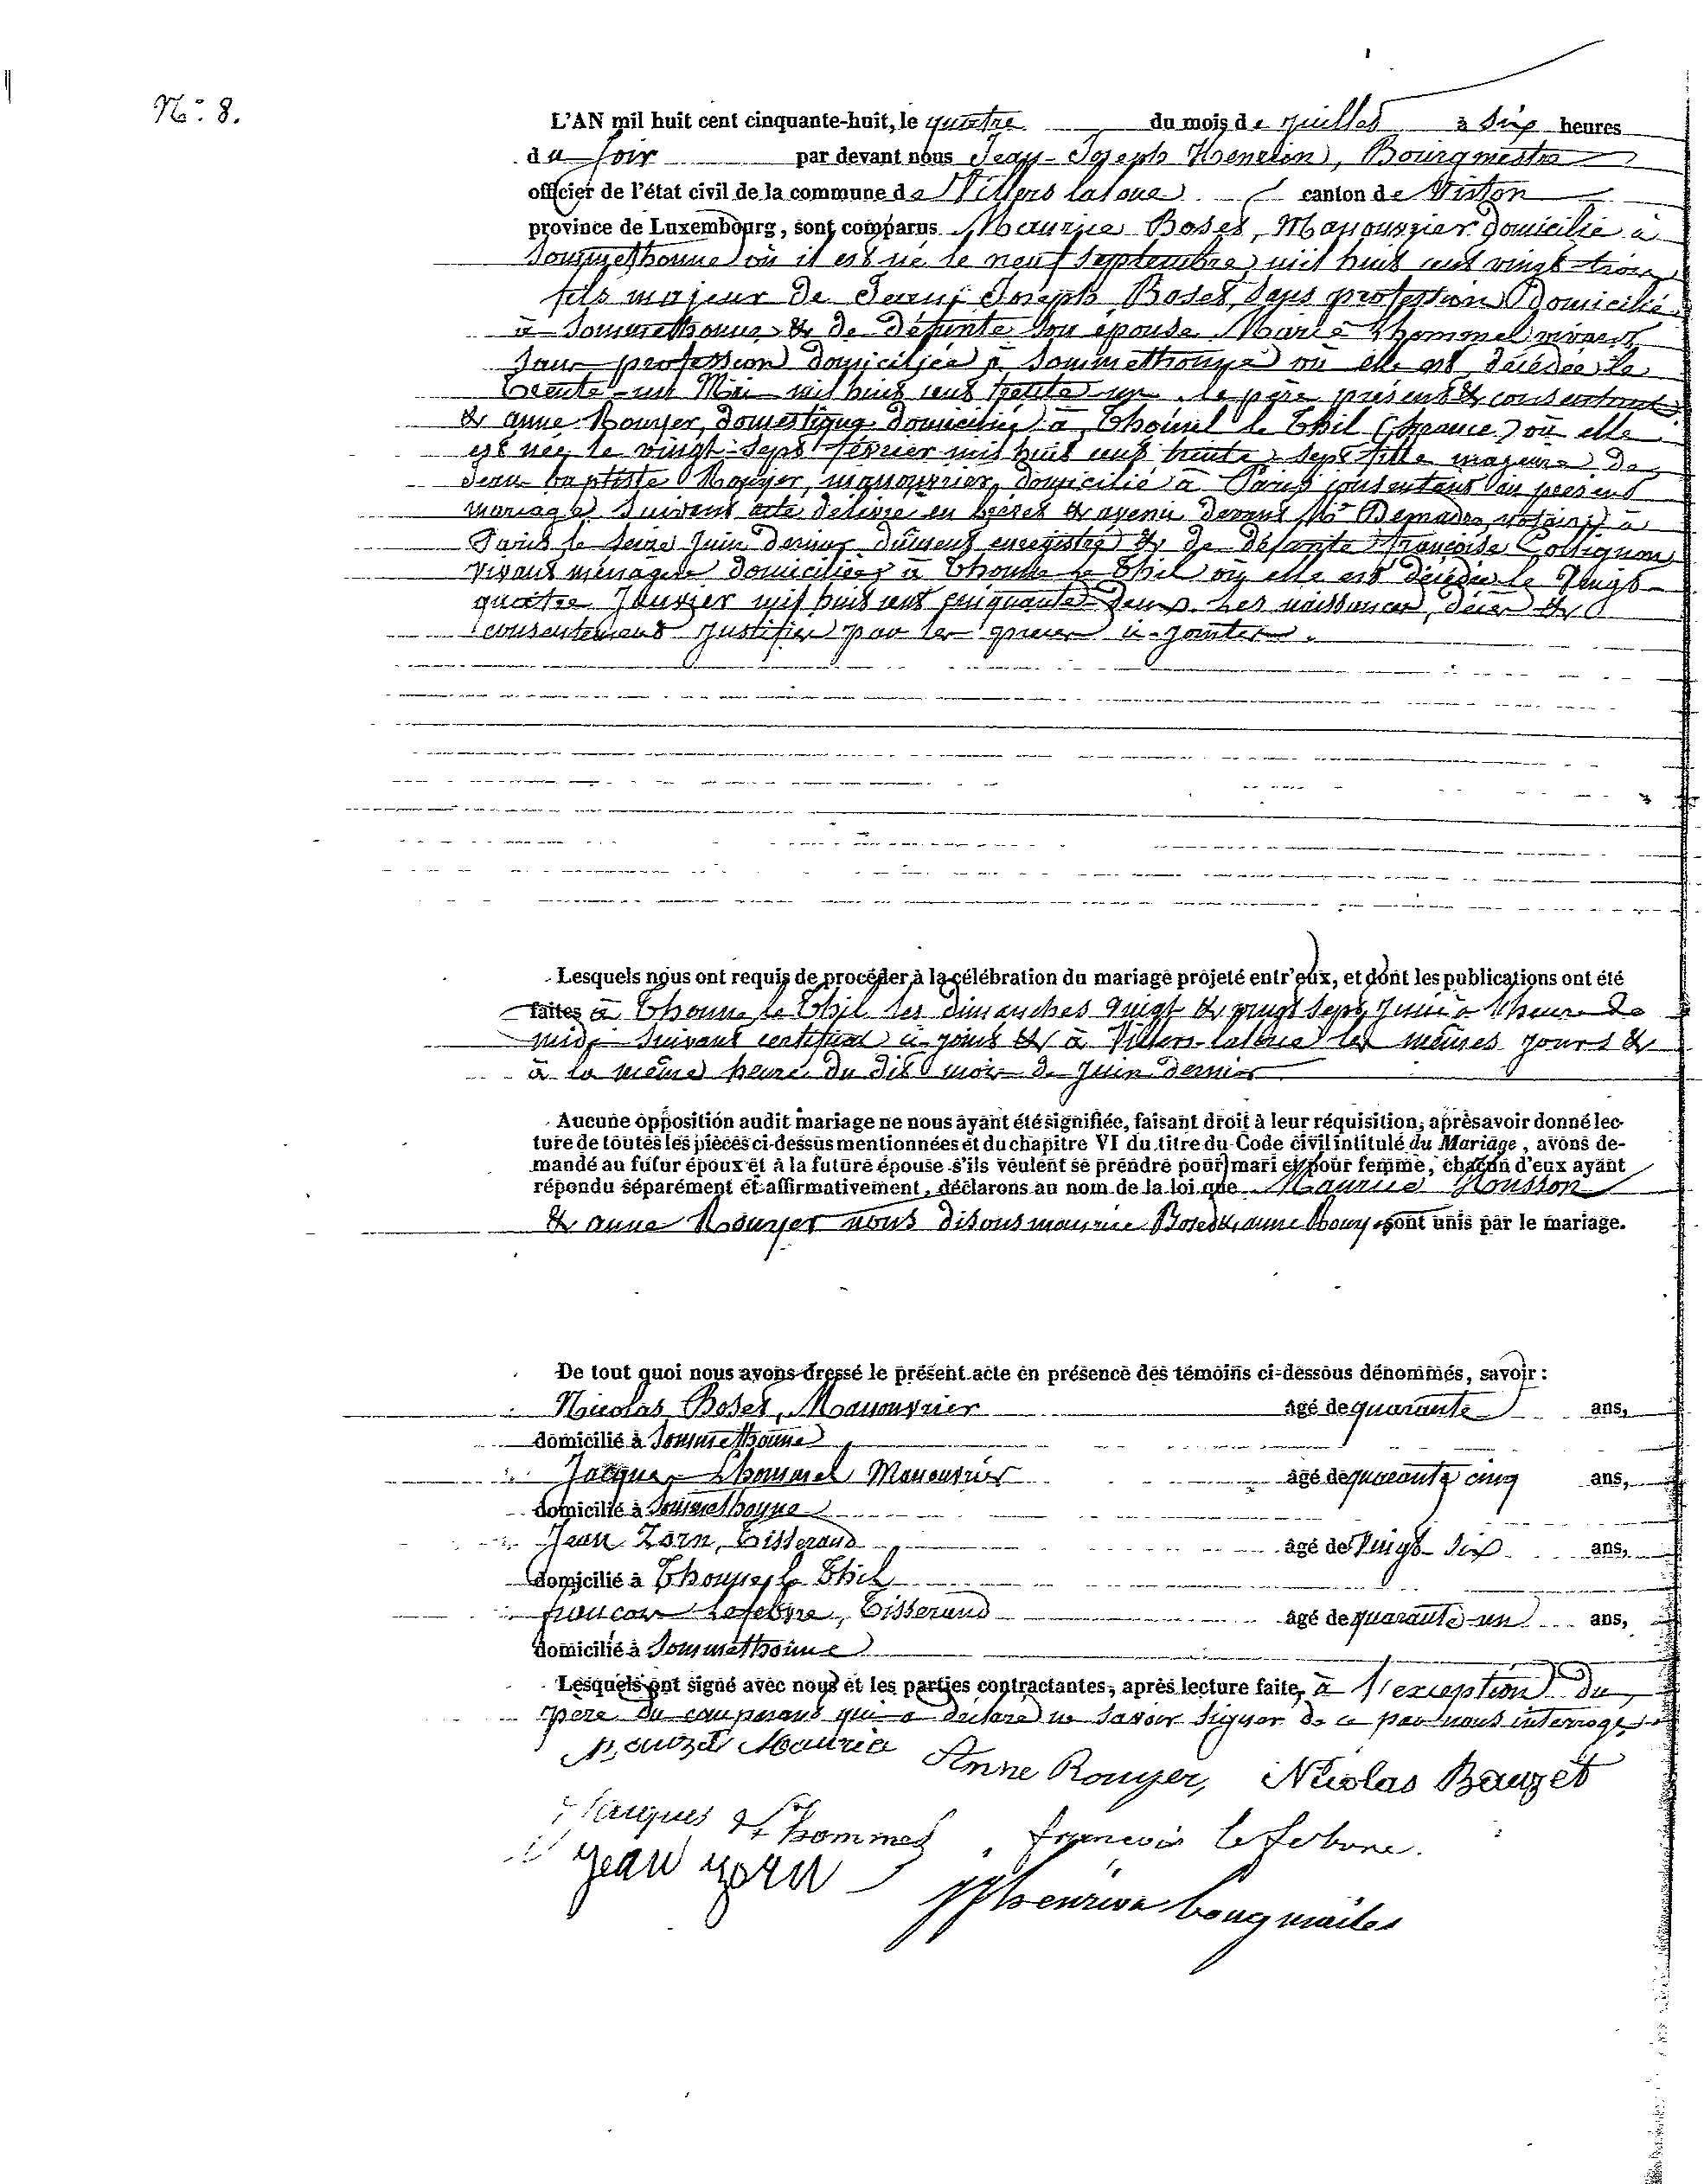 N° 8.
L'AN mil huit cent cinquante-huit, le quatre du mois de juillet à six heures
du soir par devant nous Jean-Joseph Henrion, Bourgmestre
officier de l'état civil de la commune de Villers laloue canton de Virton
province de Luxembourg, sont comparus Maurice Boset, Manouvrier domicilié à
Sommethonne où il est né le neuf septembre mil huit cent vingt-trois
fils majeur de Joseph Boset, sans profession domicilié
à Sommethonne & de défunte son épouse Marie Lhommel vivant
sans profession domiciliée à Sommethonne où elle est décédée le
trente-un Mai mil huit cent trente un, le père présent & consentant
& anne Rouyer, domestique domiciliée à Thonne le Thil (france) où elle
est née le vingt-sept février mil huit cent trente-sept fille majeure de
Jean baptiste Rouyer, manouvrier, domicilié à Paris consentant au présent
mariage suivant acte délivré en brevet & avenu devant Mr Demadre, notaire à
Paris le seize Juin dernier dûment enregistré & de défunte Françoise Collignon
vivant ménagère domiciliée à Thonne le Thil où elle est décédée le vingt-
quatre Janvier mil huit cent cinquante-deux. Les naissances, décès &
consentement justifiés par les pièces ci-jointes.
Lesquels nous ont requis de procéder à la célébration du mariage projeté entr'eux, et dont les publications ont été
faites à Thonne le Thil les dimanches vingt & vingt sept Juin à l'heure de
midi suivant certificat ci-joint & à Villers-laloue les mêmes jours &
à la même heure du dit mois de Juin dernier
Aucune opposition audit mariage ne nous ayant été signifiée, faisant droit à leur réquisition, après avoir donné lec-
ture de toutes les pièces ci-dessus mentionnées et du chapitre VI du titre du Code civil intitulé du Mariage, avons de-
mandé au futur époux et à la future épouse s'ils veulent se prendre pour mari et pour femme, chacun d'eux ayant
répondu séparément et affirmativement, déclarons au nom de la loi que Maurice Housson
& anne Rouyer nous disons maurice Boset & anne Rouyer sont unis par le mariage.
De tout quoi nous avons dressé le présent acte en présence des témoins ci-dessous dénommés, savoir :
Nicolas Boset, Manouvrier âgé de quarante ans,
domicilié à Sommethonne
Jacques Lhommel Manouvrier âgé de quarante cinq ans,
domicilié à Sommethonne
Jean Zorn, Tisserand âgé de vingt six ans,
domicilié à Thonne le Thil
françois Lefebvre, Tisserand âgé de quarante-un ans,
domicilié à Sommethonne
Lesquels ont signé avec nous et les parties contractantes, après lecture faite, à l'exception du
père du comparant qui a déclaré ne savoir signer de ce par nous interrogé.
Bauzet Maurice Anne Rouyer, Nicolas Bauzet
Jacques Lhommel françois lefebvre.
jean zorn JJhenrion bourgmaitre